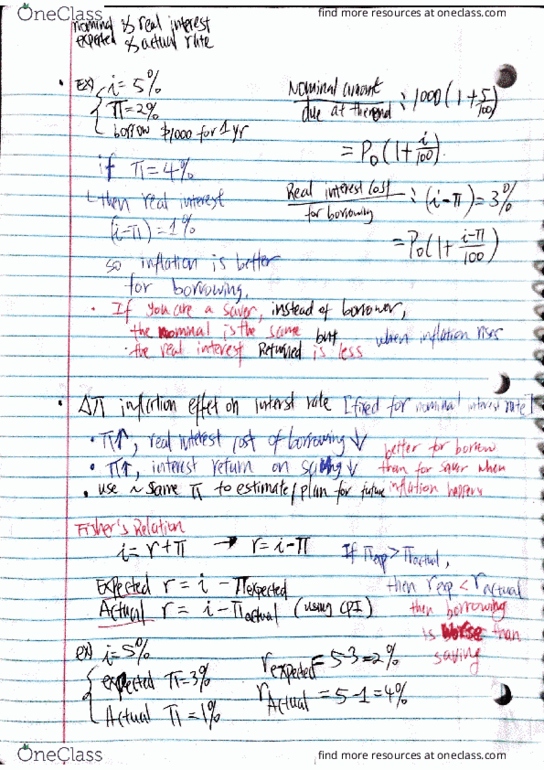 OneClass
find more resources at oneclass.com
nominal & real interest
expected & actual rate
• EX) i = 5%
π = 2%
borrow $1000 for 1 yr
Nominal amount due at the end : 1000(1+5/100)
= P₀(1+i/100).
if π = 4%
then real interest
(i-π) = 1%
so inflation is better
for borrowing.
Real interest cost for borrowing : (i-π) = 3%
= P₀(1+i-π/100)
• If you are a saver, instead of borrower,
the nominal is the same but when inflation rises
• the real interest Returned is less
• Δπ inflection effect on interst rate [fixed for nominal interest rate]
• π↑, real interest cost of borrowing ↓
• π↑, interest return on saving ↓
better for borrow
than for saver when
inflation happens
• use ~ same π to estimate/plan for future
Fisher's Relation
i = r+π → r = i-π
If π exp > π actual,
then r exp < r actual
then borrowing
is worse than
saving
Expected r = i - π expected
Actual r = i - π actual (using CPI)
ex) i = 5%
expected π = 3%
Actual π = 1%
r expected = 5-3 = 2%
r Actual = 5-1 = 4%
OneClass
find more resources at oneclass.com